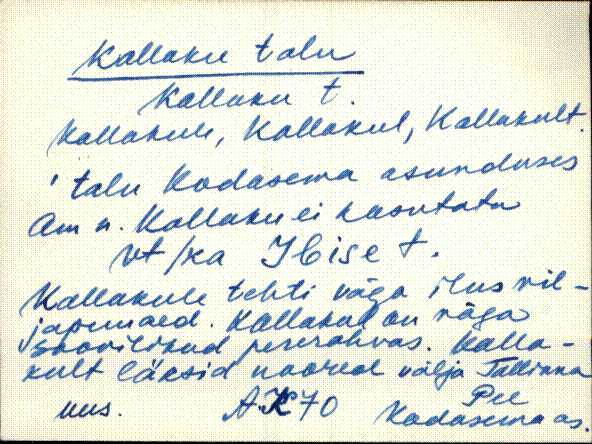 Kallaku talu
Kallaku t.
Kallakule, Kallakul, Kallakult.
'talu Kodasema asunduses
Am n. Kallaku ei kasutata
vt/ka Ibise t.
Kallakule tehti väga ilus vil-
japuuaed. Kallakul on väga
soovilikud pererahvas. Kalla-
kult läksid noored välja Tallinna
uus. AK70 Pee
Kodasema as.